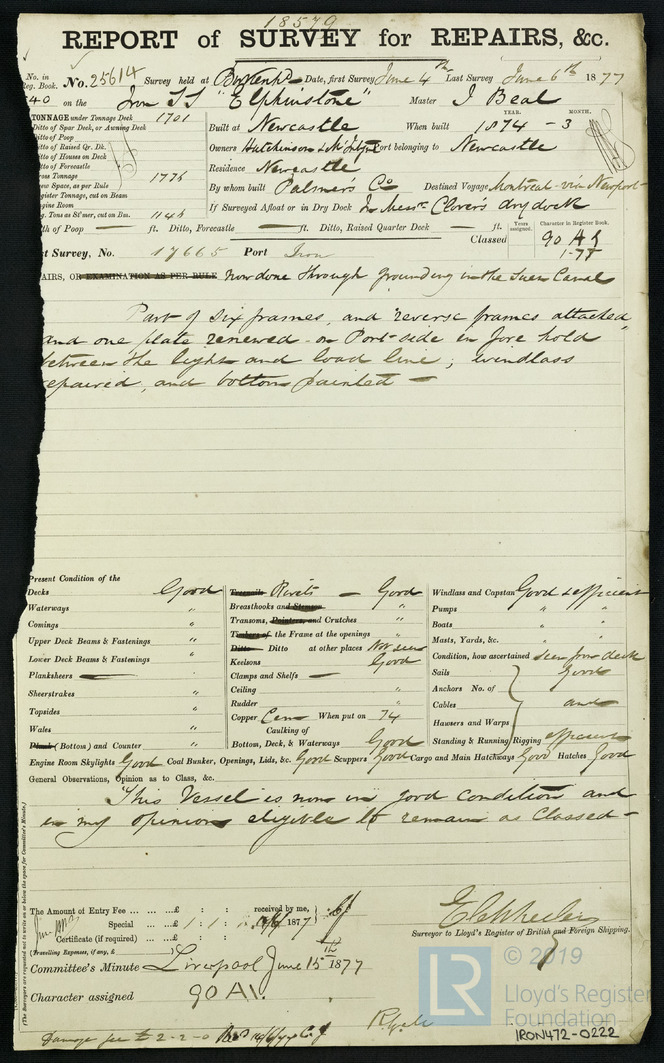 18579
REPORT of SURVEY for REPAIRS, &c.
No. in
Reg. Book.
No. 25614 Survey held at Date, first Survey June 4th Last Survey June 6th 1877
40 on the Iron SS "Elphinstone" Master J Beal
TONNAGE under Tonnage Deck 1701
Ditto of Spar Deck, or Awning Deck
Ditto of Poop
Ditto of Raised Qr. Dk.
Ditto of Houses on Deck
Ditto of Forecastle
Gross Tonnage 1776
Crew Space, as per Rule
Register Tonnage, cut on Beam
Engine Room
Reg. Tons as St'mer, cut on Bm. 1146
YEAR. MONTH.
Built at Newcastle When built 1874 - 3
Owners Hutchinson & Port belonging to Newcastle
Residence Newcastle
By whom built Palmers Co Destined Voyage Montreal via Newport
If Surveyed Afloat or in Dry Dock In Messrs Clover's dry dock
th of Poop — ft. Ditto, Forecastle — ft. Ditto, Raised Quarter Deck — ft.
Years assigned. Character in Register Book.
Classed 90 A1
1-77
t Survey, No. 17665 Port Iron
AIRS, OR EXAMINATION AS PER RULE now done through grounding in the Suez Canal
Part of six frames, and reverse frames attached
and one plate renewed on Port side in fore hold
between the light and load line; windlass
epaired, and bottom painted —
Present Condition of the
Decks Good
Waterways "
Comings "
Upper Deck Beams & Fastenings "
Lower Deck Beams & Fastenings "
Planksheers —
Sheerstrakes "
Topsides "
Wales "
Plank (Bottom) and Counter "
Treenails Rivets — Good
Breasthooks and Stemson "
Transoms, Pointers, and Crutches "
Timbers of the Frame at the openings "
Ditto Ditto at other places Not seen
Keelsons Good
Clamps and Shelfs —
Ceiling "
Rudder "
Copper Cem When put on 74
Caulking of
Bottom, Deck, & Waterways Good
Windlass and Capstan Good & efficient
Pumps " "
Boats " "
Masts, Yards, &c. " "
Condition, how ascertained seen from deck
Sails Good
Anchors No. of
Cables and
Hawsers and Warps
Standing & Running Rigging efficient
Engine Room Skylights Good Coal Bunker, Openings, Lids, &c. Good Scuppers Good Cargo and Main Hatchways Good Hatches Good
General Observations, Opinion as to Class, &c.
This Vessel is now in good condition and
in my opinion eligible to remain as Classed —
The Amount of Entry Fee ... ... £ : : received by me,
Special ... ... £ 1 : 1 : 1877
Certificate (if required) ... £ : :
(Travelling Expenses, if any, £ )
Surveyor to Lloyd's Register of British and Foreign Shipping.
Committee's Minute Liverpool June 15th 1877
Character assigned 90 A1.
Damage fee £ 2-2-0
(The Surveyors are requested not to write on or below the space for Committee's Minute.)
© 2019
LR
Lloyd's Register
Foundation
IRON472-0222